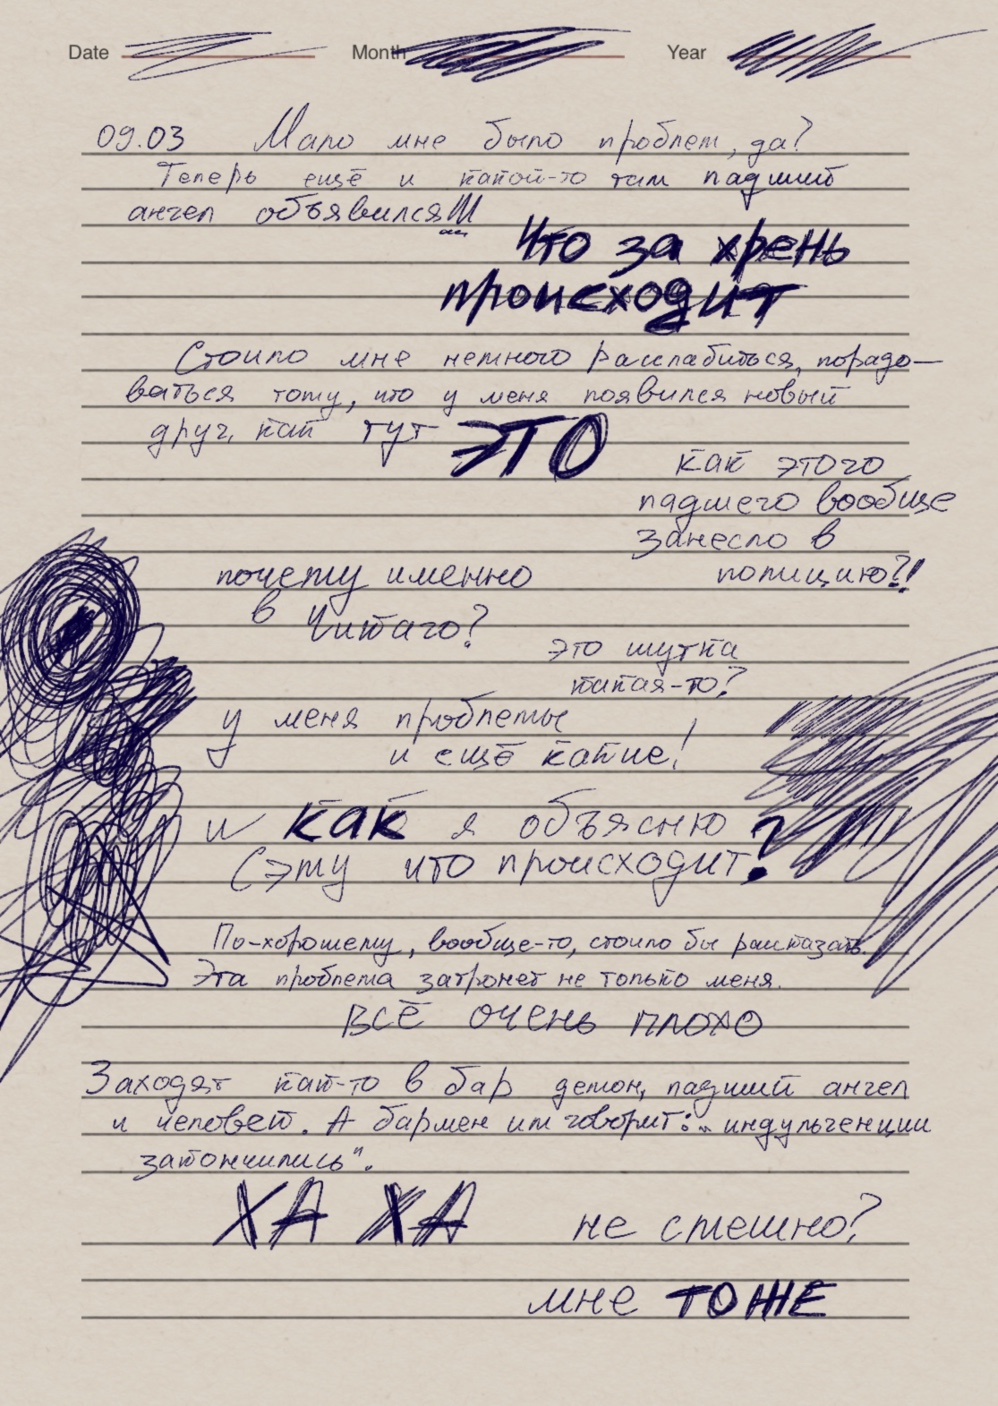 Date Month Year
09.03 Мало мне было проблем, да?
Теперь ещё и какой-то там падший
ангел объявился!!!
Что за хрень
происходит
Стоило мне немного расслабиться, порадо-
ваться тому, что у меня появился новый
друг, как тут ЭТО
как этого
падшего вообще
занесло в
полицию?!
почему именно
в Чикаго?
это шутка
какая-то?
у меня проблемы
и ещё какие!
и КАК я объясню
Сэму что происходит?
По-хорошему, вообще-то, стоило бы рассказать.
Эта проблема затронет не только меня.
ВСЁ ОЧЕНЬ ПЛОХО
Заходят как-то в бар демон, падший ангел
и человек. А бармен им говорит: "индульгенции
закончились".
ХА ХА не смешно?
мне ТОЖЕ